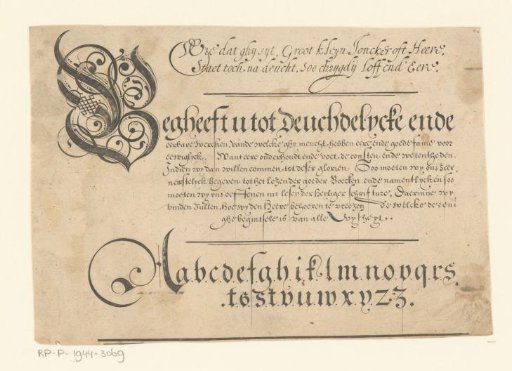 Wie dat ghy syt, Groot kleyn Joncker oft Heere
Staet toch na deucht, Soo chrygdy loff end Eere.
Begheeft u tot Deuchdelycke ende
eerbare Wercken Vande welcke ghy meucht hebben eere ende goede fame voor
eerwighlyck. Want eere onderhoudt ende voet de consten ende wetentheden.
Indien wy dan willen commen tot deser glorien. Soo moeten wy ons
neerstelyck begeven tot het lezen der goeder Boecken ende namentlycken soo
moeten wy ons oeffenen int lesen der heyliger schrifture. Daerinne wy
vinden sullen, hoe wy den Heere behooren te vreezen, de welcke
ghe beginsele is van alle Wysheyt.
Aabcdefghiklmnopqrs
.tsstvuwxyz.z.
RP-P-1944-3069